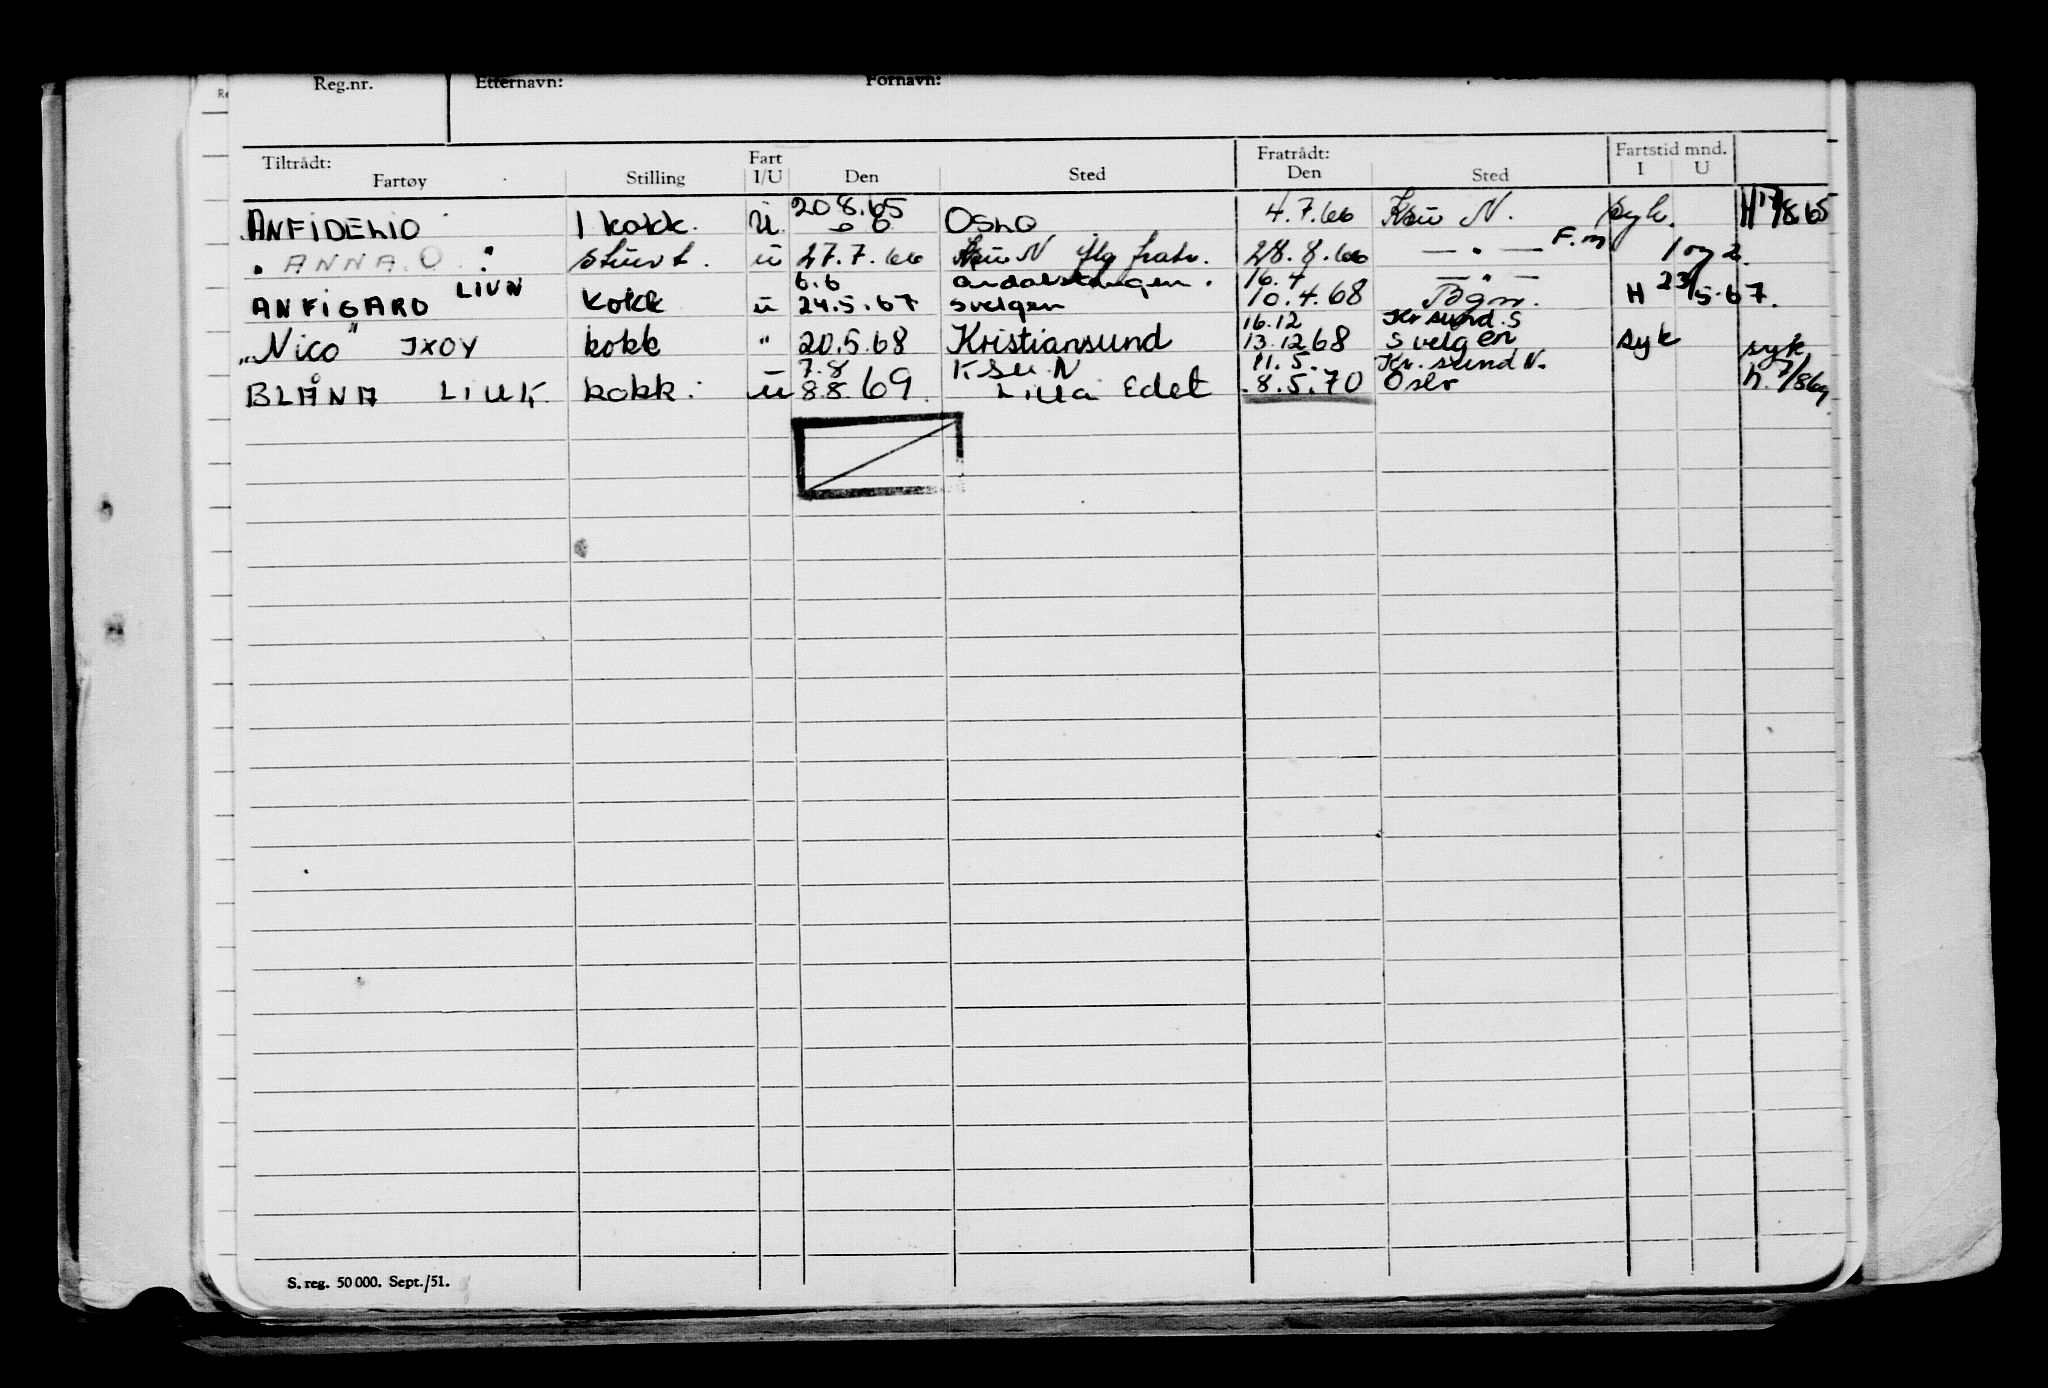 Reg.nr. Etternavn: Fornavn:
Tiltrådt: Fart Fratrådt: Fartstid mnd.
Fartøy Stilling I/U Den Sted Den Sted I U
20 8.65
ANFIDELIO 1 kokk. U. Oslo 4.7.66 Ksu N. syk. H 17/8 65
" ANNA O. " stuert. u 27.7.66 Ksu N iflg fratr. 28.8.66 — " — F.m 1 og 2.
6.6 Årdalstangen. 16.4 — " —
ANFIGARO LIVN kokk u 24.5.67 Svelgen 10.4.68 H 23/5.67.
16.12 Kr sund. S
"Nico" JXOY kokk " 20.5.68 Kristiansund 13.12 68 Svelgen syk syk
7.8 KSU. N 11.5. Kr. sund N.
BLÅNA kokk. u 8.8.69. Lilla Edet 8.5.70 Oslo h. 7/8 69
S. reg. 50 000. Sept./51.